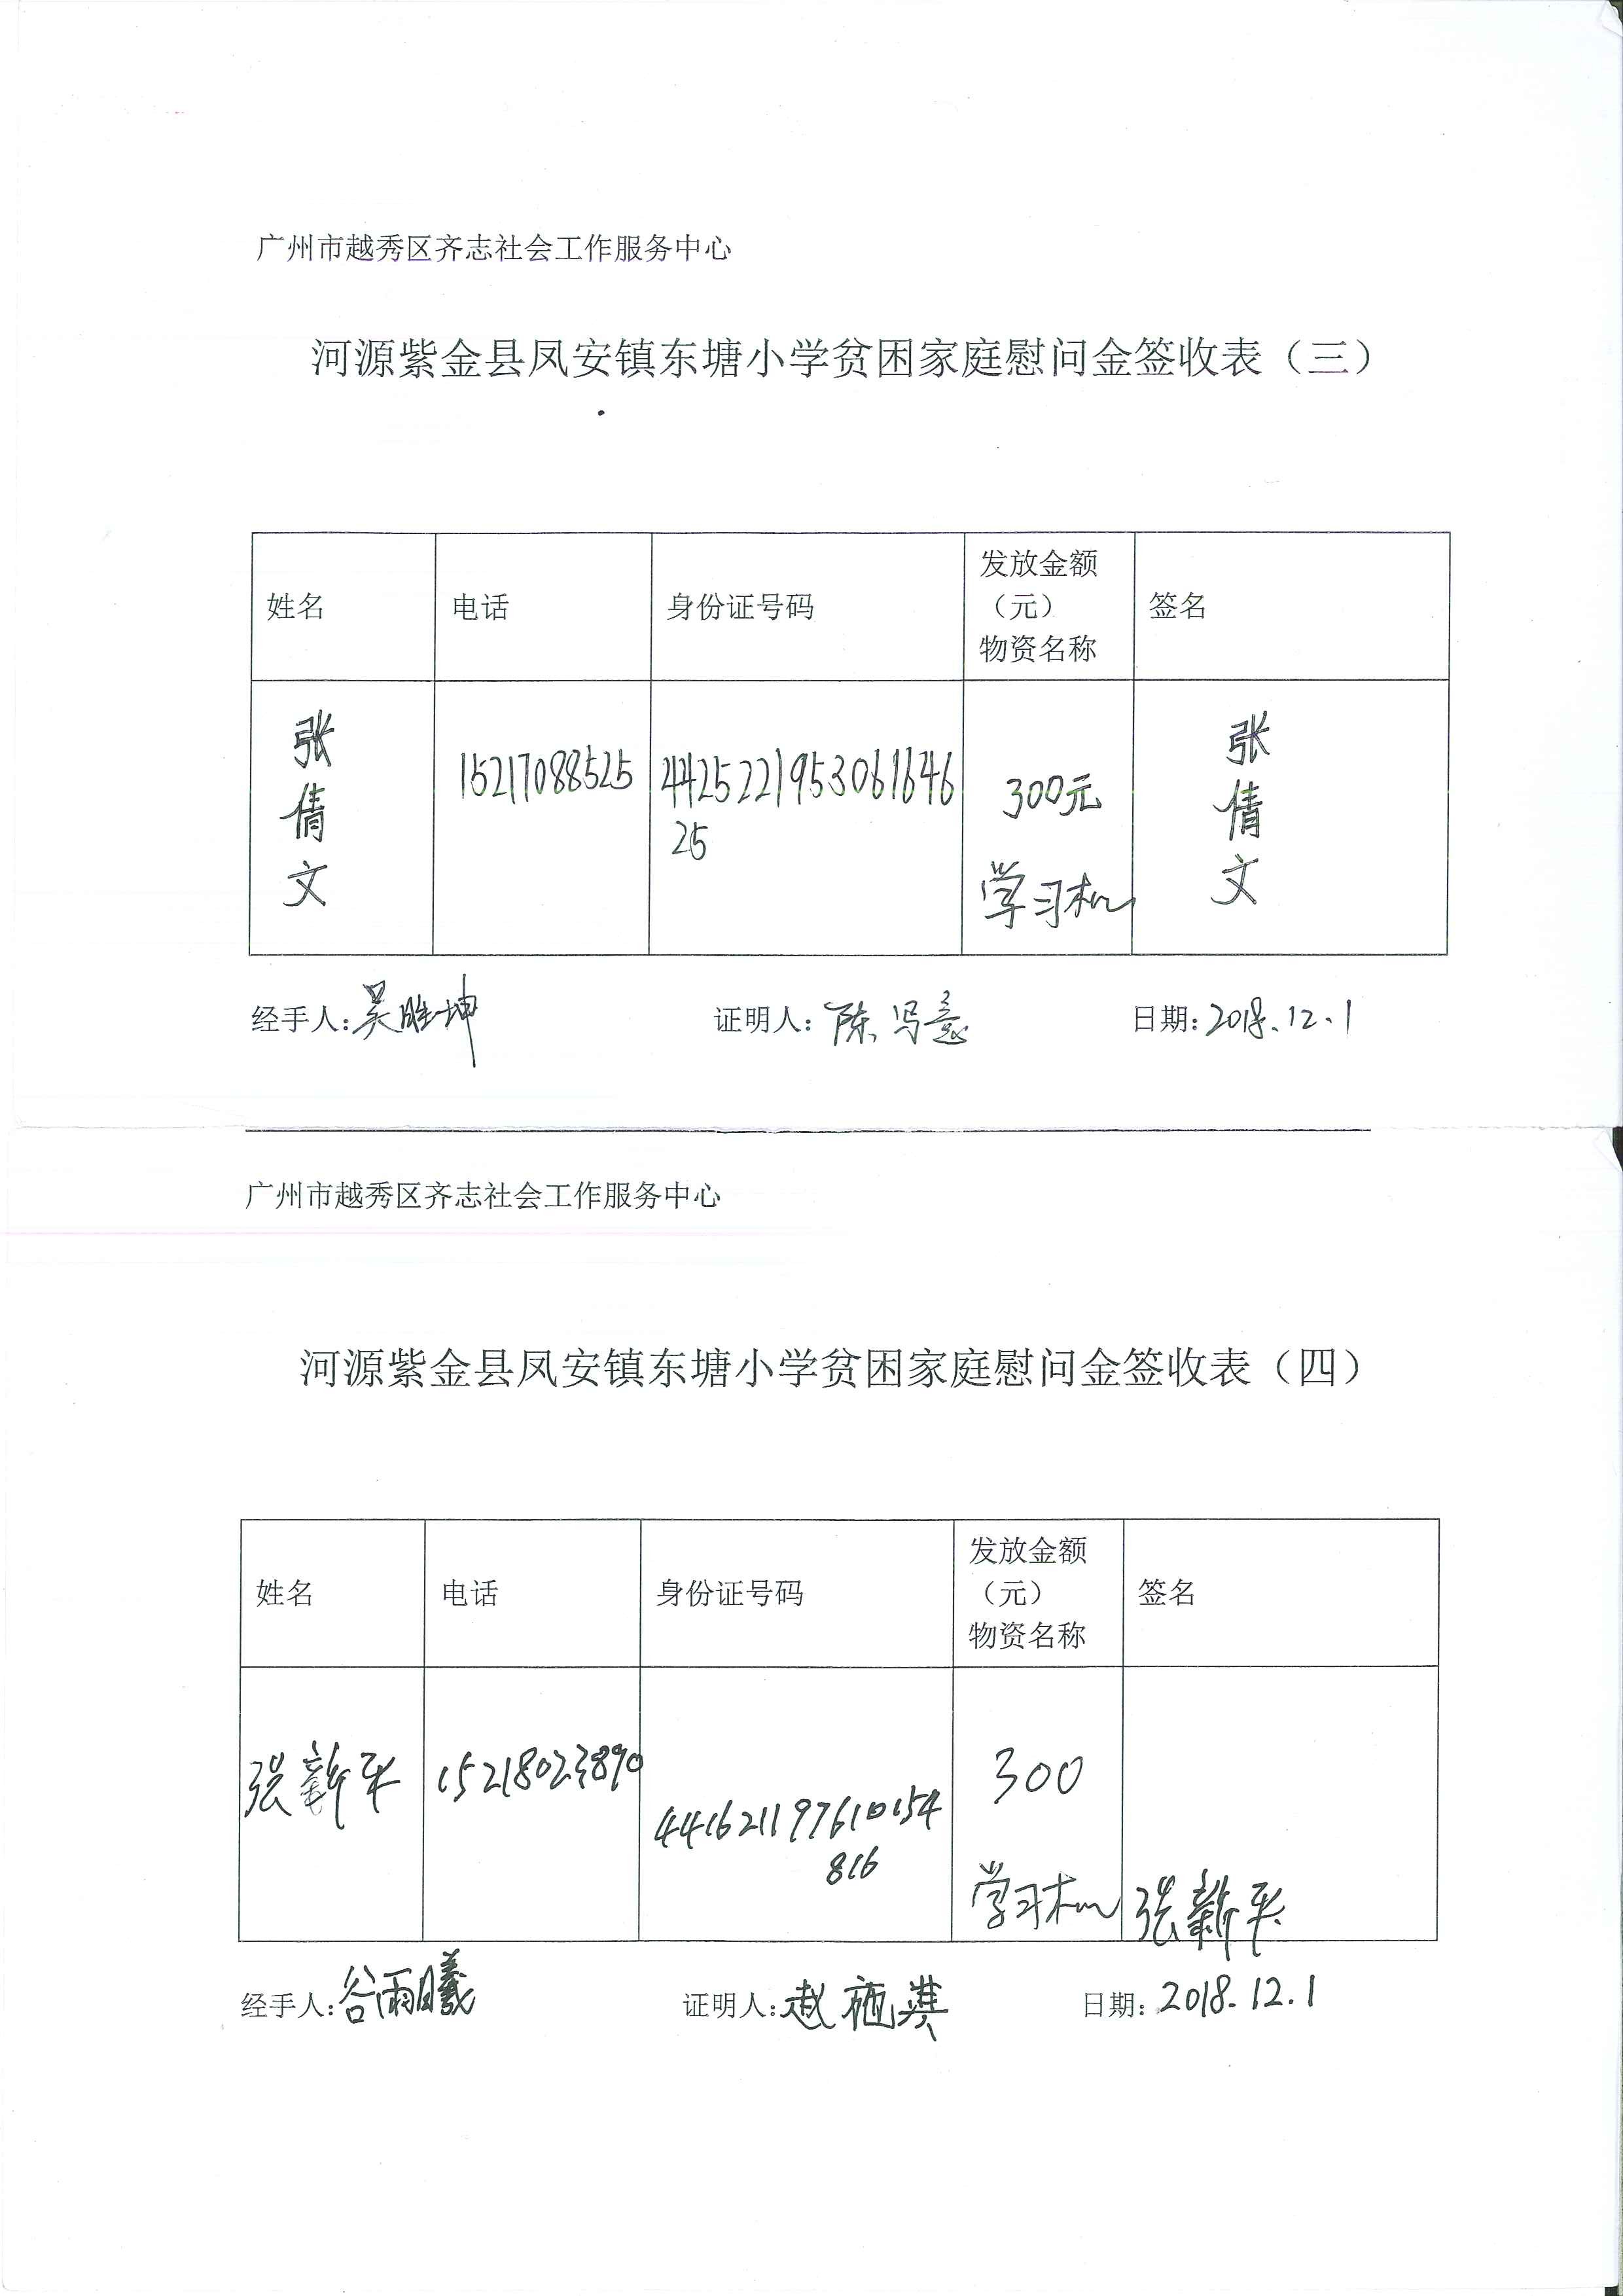 广州市越秀区齐志社会工作服务中心
河源紫金县凤安镇东塘小学贫困家庭慰问金签收表（三）
姓名 电话 身份证号码 发放金额（元）物资名称 签名
张倩文 15217088525 442522195306164625 300元 学习机 张倩文
经手人：吴胜坤 证明人：陈写意 日期：2018.12.1
广州市越秀区齐志社会工作服务中心
河源紫金县凤安镇东塘小学贫困家庭慰问金签收表（四）
姓名 电话 身份证号码 发放金额（元）物资名称 签名
张新平 15218023890 441621197610154816 300 学习机 张新平
经手人：谷雨曦 证明人：赵 日期：2018.12.1